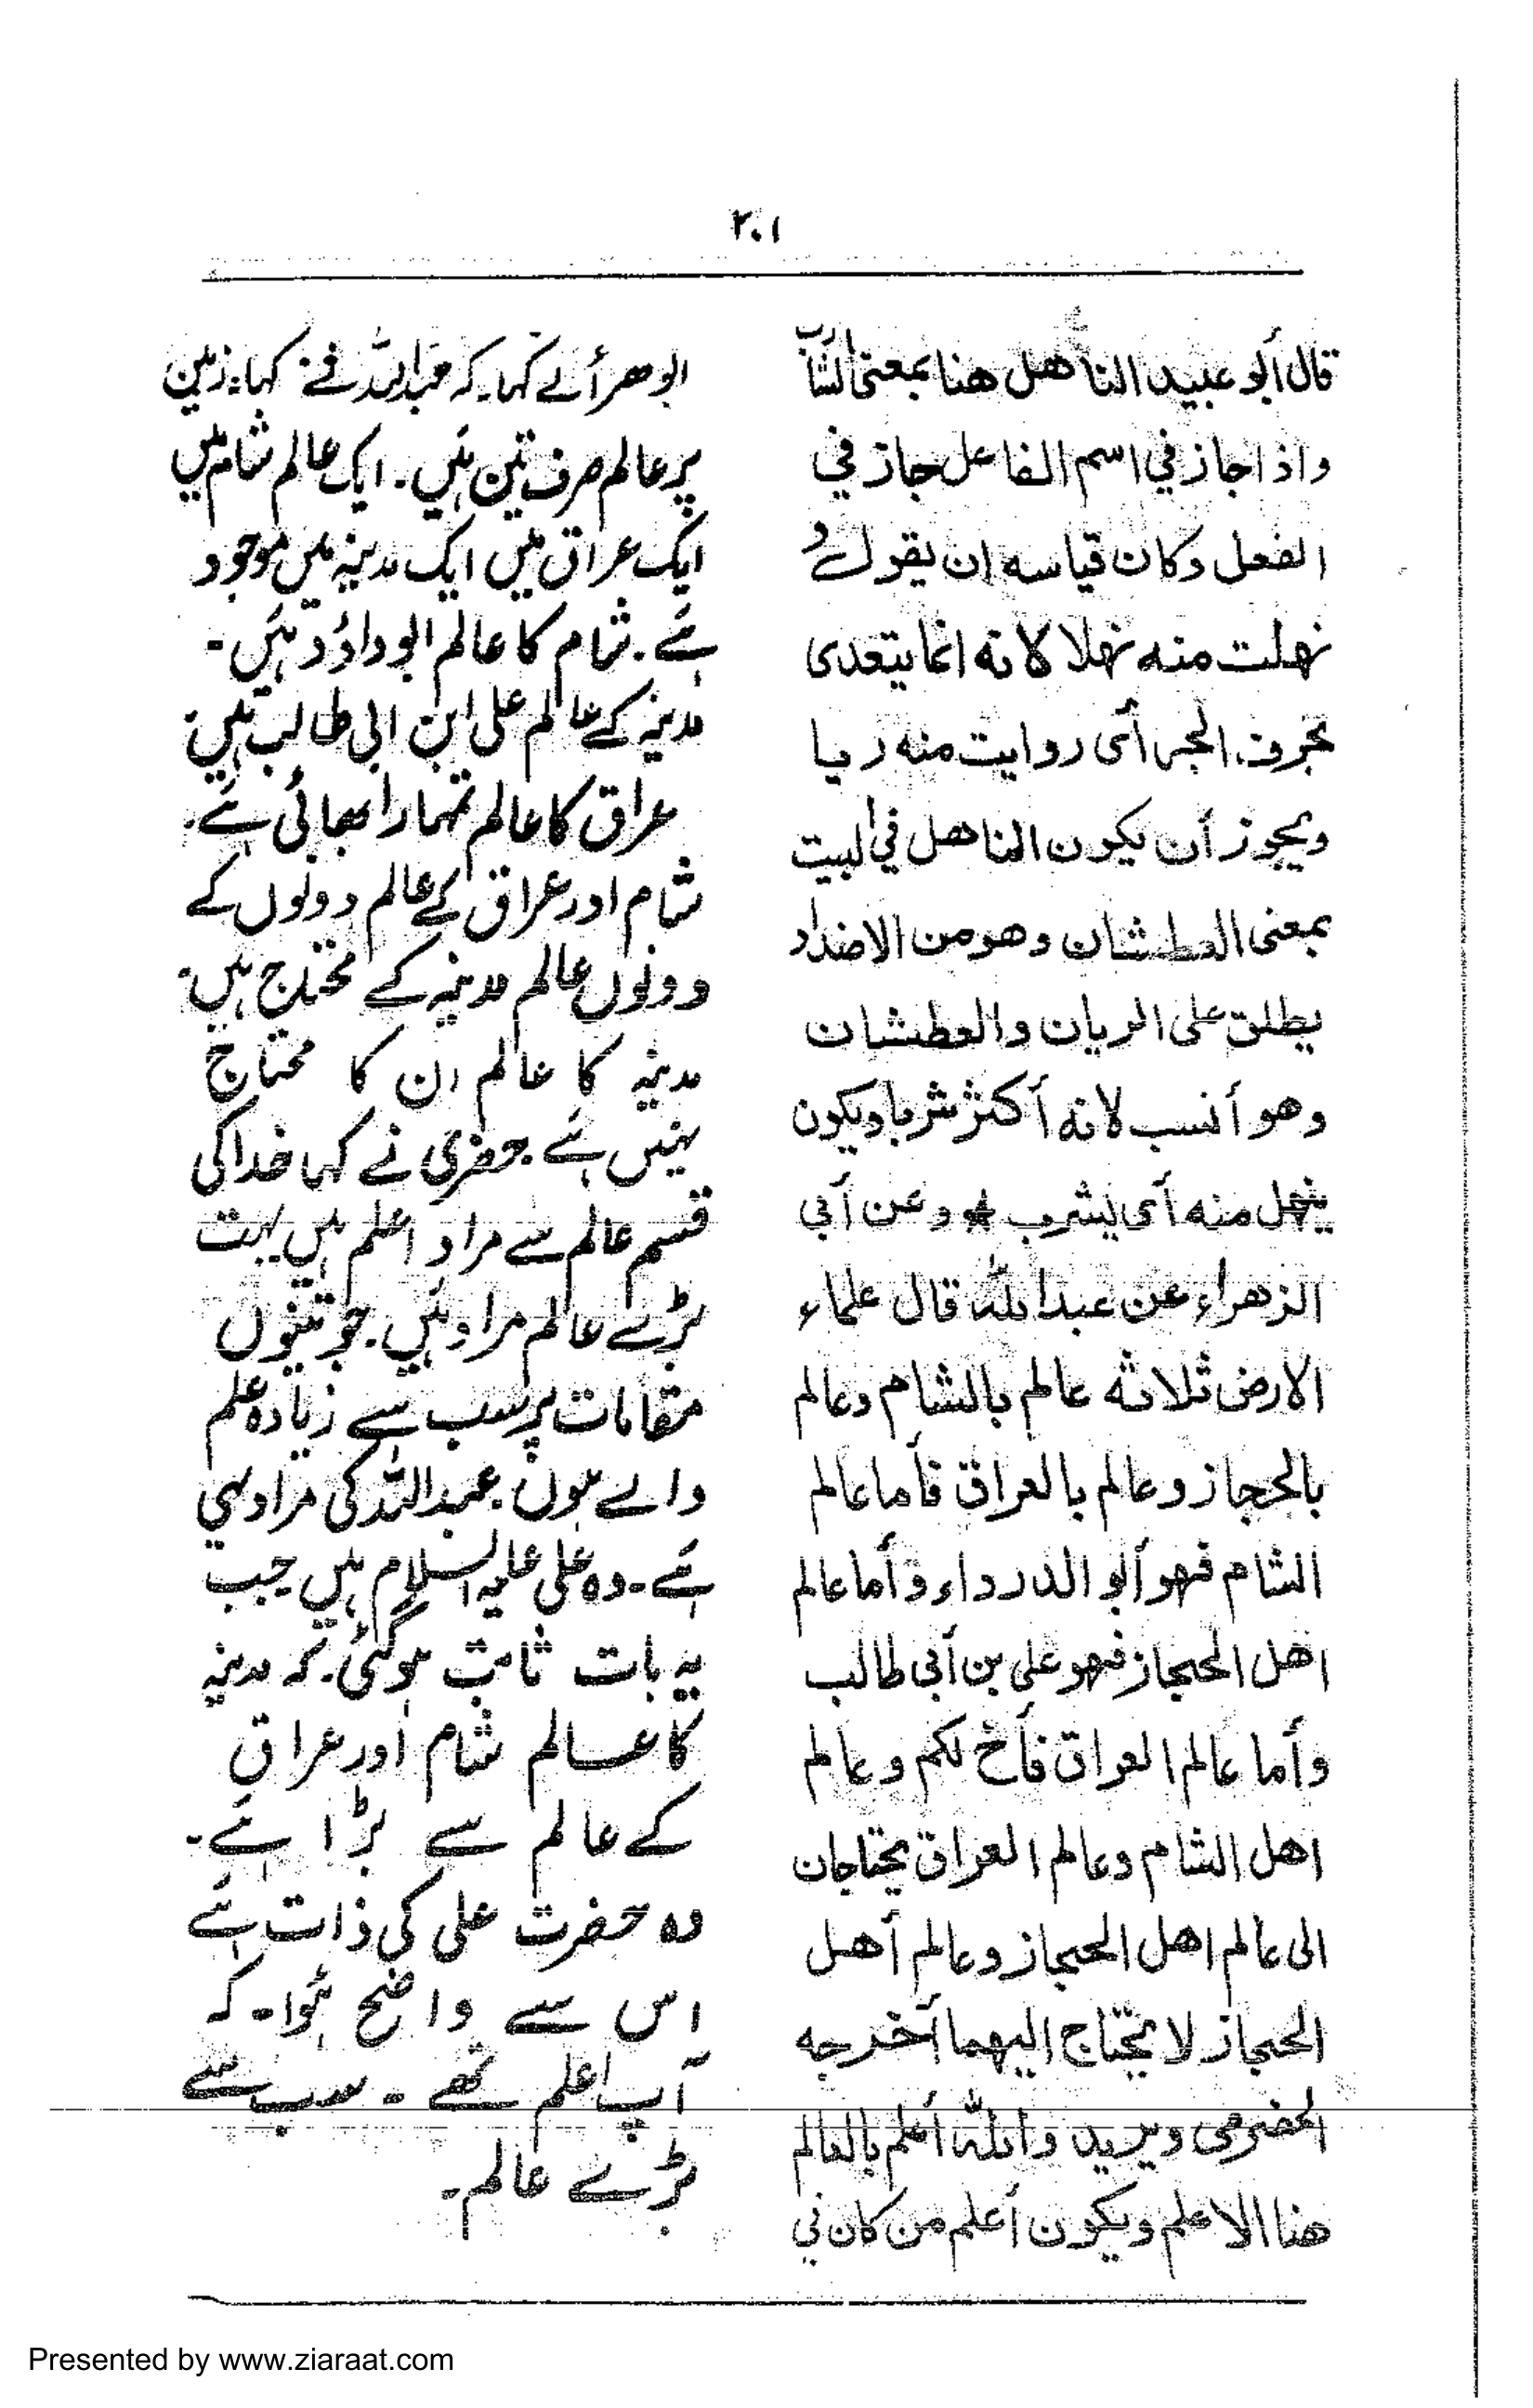 ۲۰۱
قال أبو عبيد الناهل هنا بمعنى الشارب
واذا جاز في اسم الفاعل جاز في
الفعل وكان قياسه ان يقول و
نهلت منه نهلا لانه انما يتعدى
بحرف الجر أى روايت منه ريا
ويجوز أن يكون الناهل في البيت
بمعنى العطشان وهو من الاضداد
يطلق على الريان والعطشان
وهو أنسب لانه أكثر شربا ويكون
ينهل منه أى يشرب * وعن أبي
الزهراء عن عبد الله قال علماء
الارض ثلاثه عالم بالشام وعالم
بالحجاز وعالم بالعراق فأما عالم
الشام فهو أبو الدرداء وأما عالم
اهل الحجاز فهو علي بن أبي طالب
وأما عالم العراق فأخ لكم وعالم
اهل الشام وعالم العراق يحتاجان
الى عالم اهل الحجاز وعالم أهل
الحجاز لا يحتاج اليهما أخرجه
الحضرمى ويريد والله أعلم بالعالم
هنا الاعلم ويكون أعلم من كان في
ابو ھرأ نے کہا۔ کہ عبداللہ نے کہا۔ زمین
پر عالم صرف تین ہیں۔ ایک عالم شام میں
ایک عراق میں ایک مدینہ میں موجود
ہے۔ شام کا عالم ابو داؤد ہیں۔
مدینہ کے عالم علی ابن ابی طالب ہیں۔
عراق کا عالم تمہارا بھائی ہے۔
شام اور عراق کے عالم دونوں کے
دونوں عالم مدینہ کے محتاج ہیں۔
مدینہ کا عالم ان کا محتاج
نہیں ہے۔ حضری نے کہا خدا کی
قسم عالم سے مراد اعلم ہیں بہت
بڑے عالم مراد ہیں۔ جو تینوں
مقامات پر سب سے زیادہ علم
والے ہوں۔ عبداللہ کی مراد یہی
ہے۔ وہ علی علیہ السلام ہیں جب
یہ بات ثابت ہوگئی۔ کہ مدینہ
کا عالم شام اور عراق
کے عالم سے بڑا ہے۔
وہ حضرت علی کی ذات ہے
اس سے واضح ہوا۔ کہ
آپ اعلم تھے۔ سب سے
بڑے عالم۔
Presented by www.ziaraat.com